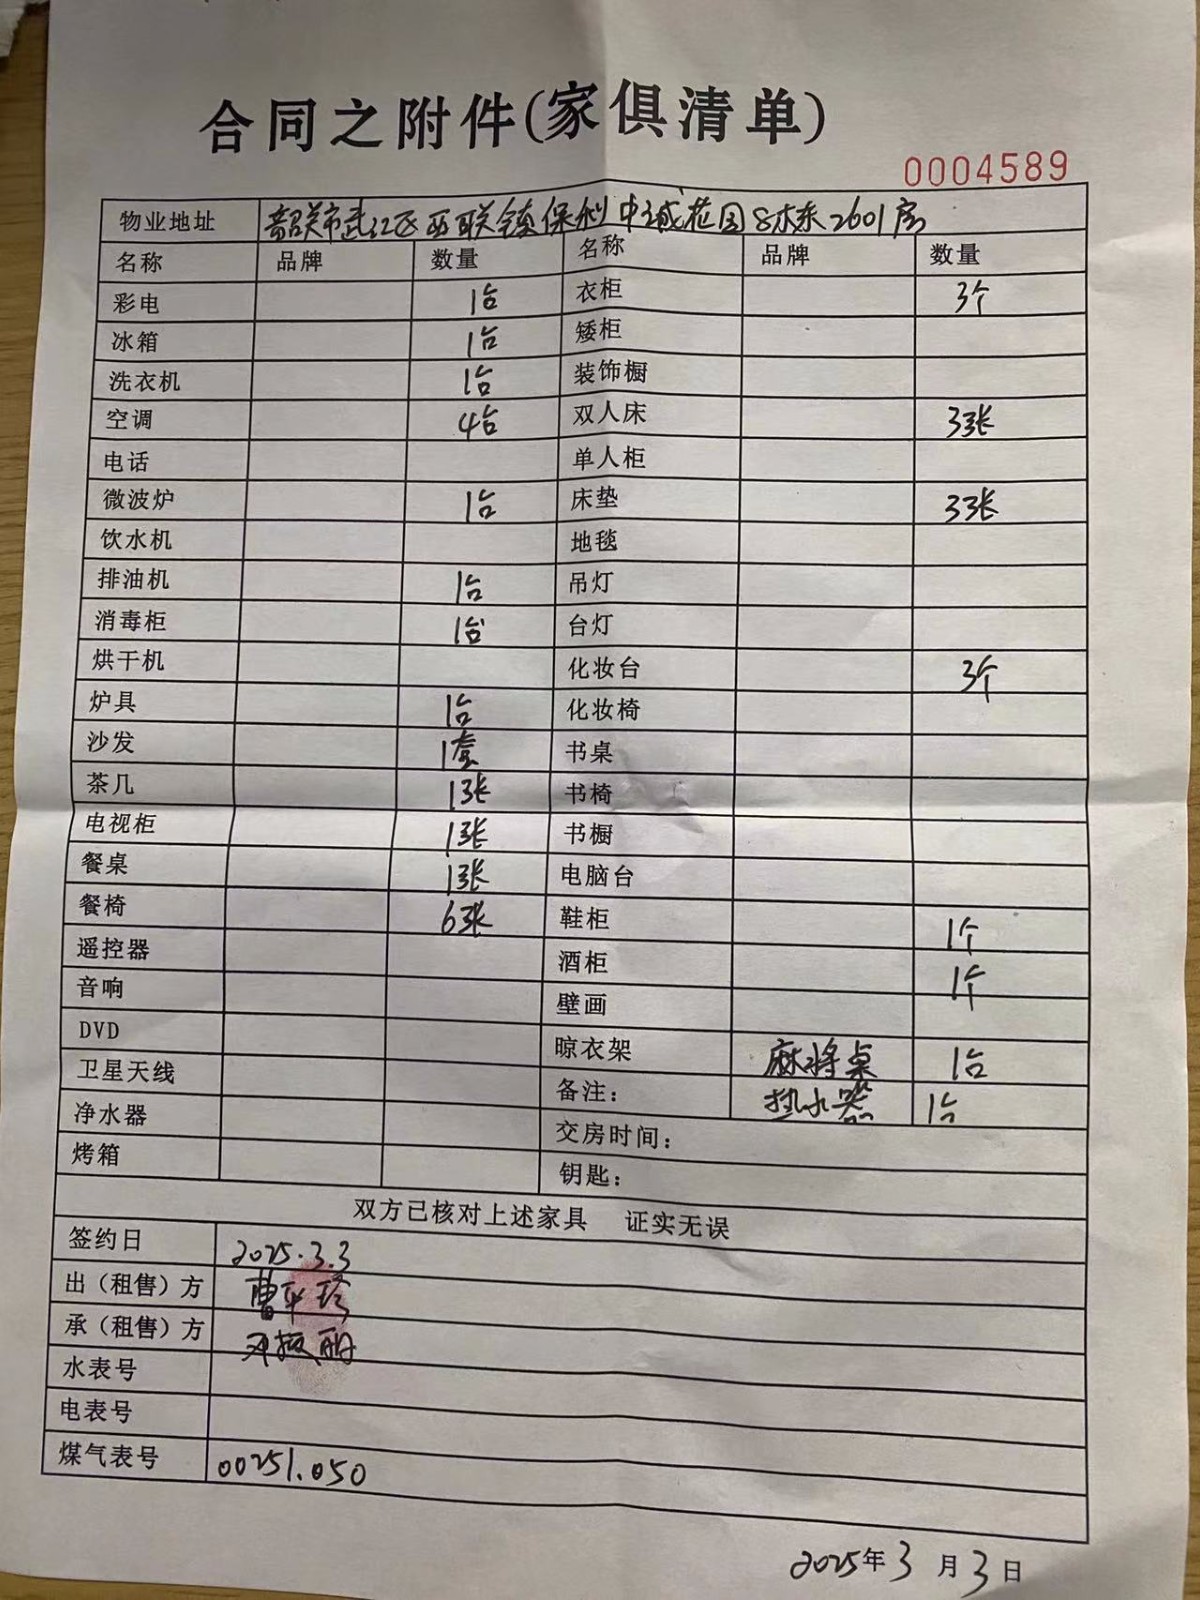 合同之附件(家俱清单)
0004589
物业地址 韶关市武江区西联镇保利中诚花园8栋2601房
名称 品牌 数量 名称 品牌 数量
彩电 1台 衣柜 3个
冰箱 1台 矮柜
洗衣机 1台 装饰橱
空调 4台 双人床 3张
电话 单人柜
微波炉 1台 床垫 3张
饮水机 地毯
排油机 1台 吊灯
消毒柜 1台 台灯
烘干机 化妆台 3个
炉具 1台 化妆椅
沙发 1套 书桌
茶几 1张 书椅
电视柜 1张 书橱
餐桌 1张 电脑台
餐椅 6张 鞋柜 1个
遥控器 酒柜 1个
音响 壁画
DVD 晾衣架 麻将桌 1台
卫星天线 备注: 热水器 1台
净水器 交房时间:
烤箱 钥匙:
双方已核对上述家具 证实无误
签约日 2025.3.3
出(租售)方 曹
承(租售)方 邓振
水表号
电表号
煤气表号 00251.050
2025年3月3日